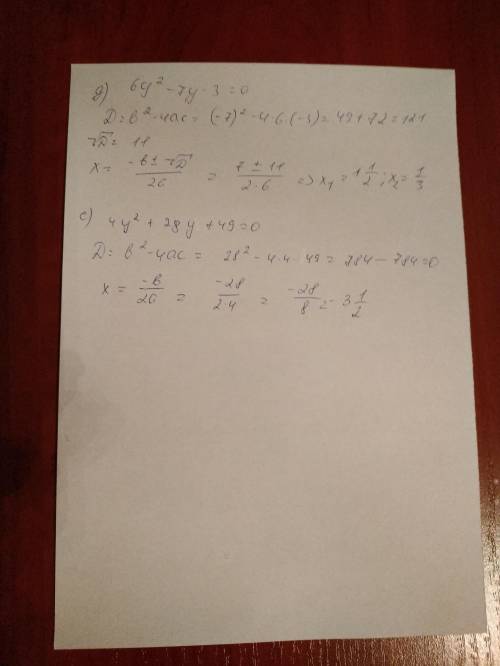 д) 6y² - 7y - 3 = 0
D = b² - 4ac = (-7)² - 4·6·(-3) = 49 + 72 = 121
√D = 11
x = (-b ± √D)/2a = (7 ± 11)/(2·6) => x₁ = 1 1/2; x₂ = 1/3
е) 4y² + 28y + 49 = 0
D = b² - 4ac = 28² - 4·4·49 = 784 - 784 = 0
x = -b/2a = -28/(2·4) = -28/8 = -3 1/2